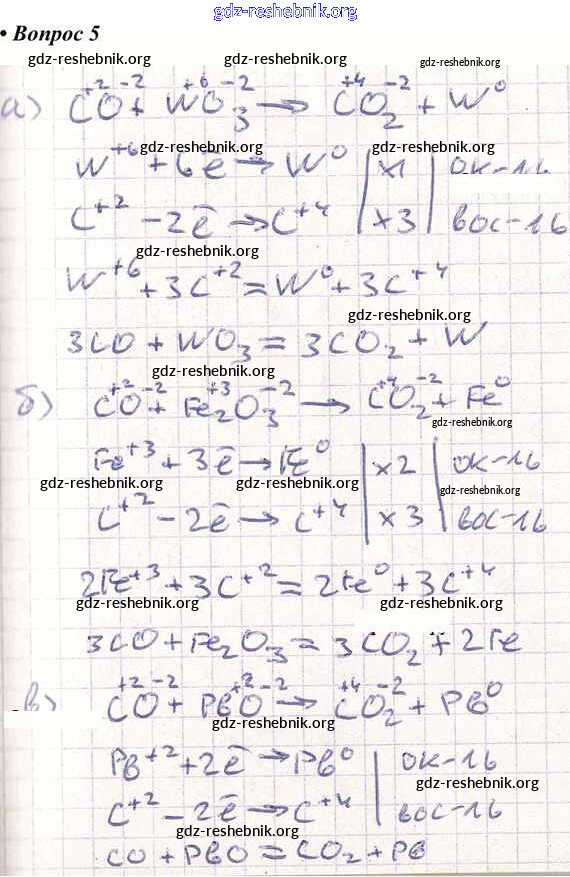 gdz-reshebnik.org
• Вопрос 5
gdz-reshebnik.org gdz-reshebnik.org gdz-reshebnik.org
а) C⁺²O⁻² + W⁺⁶O₃⁻² → C⁺⁴O₂⁻² + W⁰
gdz-reshebnik.org gdz-reshebnik.org
W⁺⁶ + 6ē → W⁰ | ×1 | ок-ль
C⁺² - 2ē → C⁺⁴ | ×3 | вос-ль
gdz-reshebnik.org
W⁺⁶ + 3C⁺² = W⁰ + 3C⁺⁴
gdz-reshebnik.org
3CO + WO₃ = 3CO₂ + W
gdz-reshebnik.org
б) C⁺²O⁻² + Fe₂⁺³O₃⁻² → C⁺⁴O₂⁻² + Fe⁰
gdz-reshebnik.org
Fe⁺³ + 3ē → Fe⁰ | ×2 | ок-ль
gdz-reshebnik.org gdz-reshebnik.org gdz-reshebnik.org
C⁺² - 2ē → C⁺⁴ | ×3 | вос-ль
2Fe⁺³ + 3C⁺² = 2Fe⁰ + 3C⁺⁴
gdz-reshebnik.org gdz-reshebnik.org
3CO + Fe₂O₃ = 3CO₂ + 2Fe
в) C⁺²O⁻² + Pb⁺²O⁻² → C⁺⁴O₂⁻² + Pb⁰
gdz-reshebnik.org
Pb⁺² + 2ē → Pb⁰ | ок-ль
gdz-reshebnik.org
C⁺² - 2ē → C⁺⁴ | вос-ль
gdz-reshebnik.org
CO + PbO = CO₂ + Pb